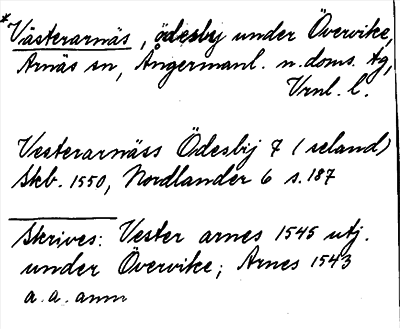 *Västerarnäs, ödesby under Övervike,
Arnäs sn, Ångermanl. n. doms. tg,
Vrnl. l.
Vesterarnäss Ödesbij 7 (seland)
Skb. 1550, Nordlander 6 s. 187
Skrives: Vester arnes 1545 utj.
under Övervike; Arnes 1543
a. a. anm